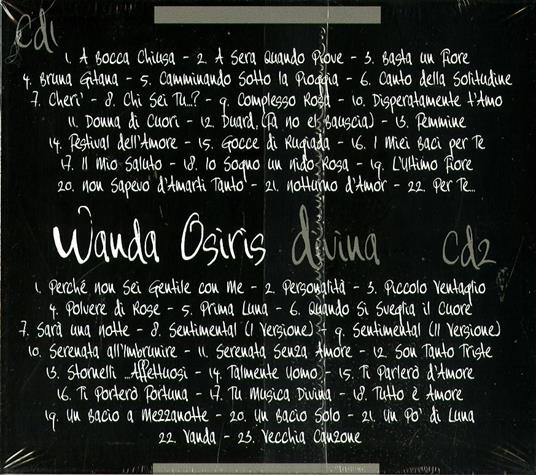 CD1
1. A Bocca Chiusa - 2. A Sera Quando Piove - 3. Basta un Fiore
4. Bruna Gitana - 5. Camminando Sotto la Pioggia - 6. Canto della Solitudine
7. Cheri' - 8. Chi Sei Tu...? - 9. Complesso Rosa - 10. Disperatamente t'Amo
11. Donna di Cuori - 12. Duard, (Fà no el Bauscia) - 13. Femmine
14. Festival dell'Amore - 15. Gocce di Rugiada - 16. I Miei Baci per Te
17. Il Mio Saluto - 18. Io Sogno un nido Rosa - 19. L'Ultimo Fiore
20. non Sapevo d'Amarti Tanto - 21. notturno d'Amor - 22. Per Te...
Wanda Osiris divina CD2
1. Perché non Sei Gentile con Me - 2. Personalità - 3. Piccolo Ventaglio
4. Polvere di Rose - 5. Prima Luna - 6. Quando Si Sveglia il Cuore
7. Sarà una notte - 8. Sentimental (I Versione) - 9. Sentimental (II Versione)
10. Serenata all'Imbrunire - 11. Serenata Senza Amore - 12. Son Tanto Triste
13. Stornelli ...Affettuosi - 14. Talmente Uomo - 15. Ti Parlerò d'Amore
16. Ti Porterò Fortuna - 17. Tu Musica Divina - 18. Tutto è Amore
19. Un Bacio a Mezzanotte - 20. Un Bacio Solo - 21. Un Po' di Luna
22. Vanda - 23. Vecchia Canzone